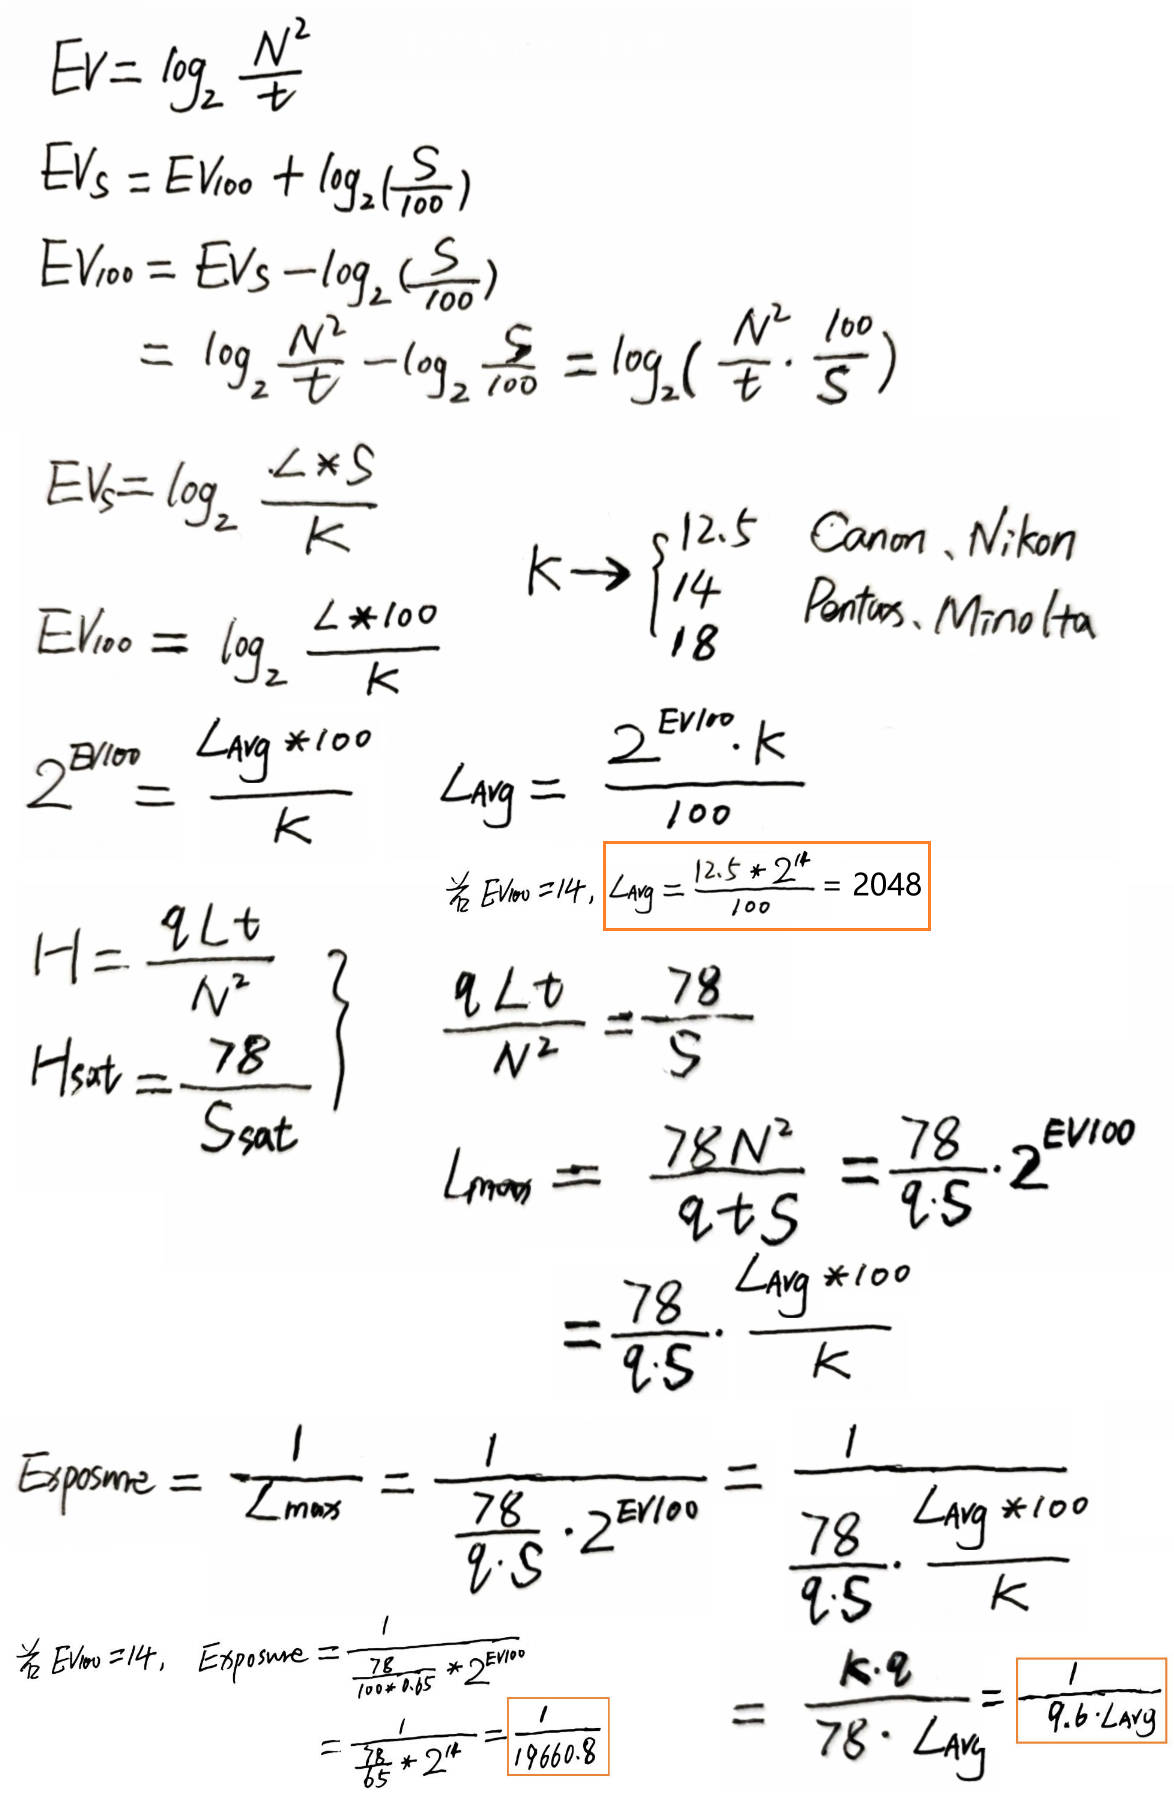 EV = log₂ N²/t
EVs = EV100 + log₂(S/100)
EV100 = EVs - log₂(S/100)
= log₂ N²/t - log₂ S/100 = log₂(N²/t · 100/S)
EVs = log₂ L*S/K
K → { 12.5 Canon、Nikon
14 Pentax、Minolta
18
EV100 = log₂ L*100/K
2^EV100 = LAvg*100/K
LAvg = 2^EV100·K/100
若EV100=14, LAvg = 12.5*2^14/100 = 2048
H = qLt/N²
Hsat = 78/Ssat
qLt/N² = 78/S
Lmax = 78N²/qtS = 78/q·S · 2^EV100
= 78/q·S · LAvg*100/K
Exposure = 1/Lmax = 1/(78/q·S · 2^EV100) = 1/(78/q·S · LAvg*100/K)
若EV100=14, Exposure = 1/(78/100*0.65 * 2^EV100)
= 1/(78/65 * 2^14) = 1/19660.8
= K·q/78·LAvg = 1/9.6·LAvg